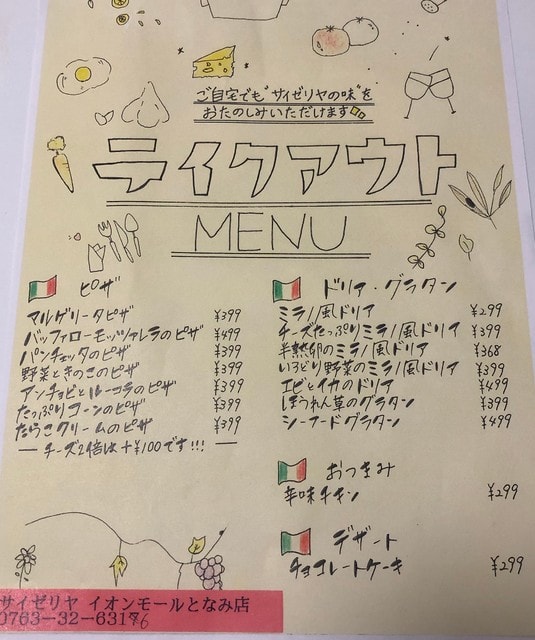 ご自宅でも"サイゼリヤの味"を
おたのしみいただけます
テイクアウト
MENU
ピザ
マルゲリータピザ ¥399
バッファローモッツァレラのピザ ¥499
パンチェッタのピザ ¥399
野菜ときのこのピザ ¥399
アンチョビとルーコラのピザ ¥399
たっぷりコーンのピザ ¥399
たらこクリームのピザ ¥399
ー チーズ2倍は+¥100です!!! ー
ドリア・グラタン
ミラノ風ドリア ¥299
チーズたっぷりミラノ風ドリア ¥399
半熟卵のミラノ風ドリア ¥368
いろどり野菜のミラノ風ドリア ¥399
エビとイカのドリア ¥499
ほうれん草のグラタン ¥399
シーフードグラタン ¥499
おつまみ
辛味チキン ¥299
デザート
チョコレートケーキ ¥299
サイゼリヤ イオンモールとなみ店
0763-32-63176